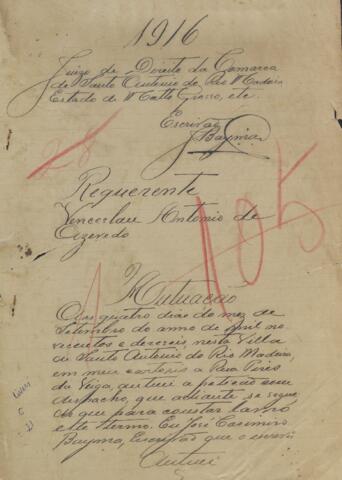 1916
Juizo de Direito da Comarca
de Santo Antonio do Rio Madeira
Estado de Matto Grosso, etc.
Escrivão
Bayma
28
105
Requerente
Venceslau Antonio de
Azevedo
Autuação
Aos quatro dias do mez de
Setembro do anno de mil no
vecentos e dezeseis, nesta Villa
de Santo Antonio do Rio Madeira,
em meu cartorio a Rua Pires
da Veiga, autuei a petição com
despacho, que adiante se segue
do que para constar lavro
este termo. Eu José Casimiro
Bayma, Escrivão que o escrevi
Autuei